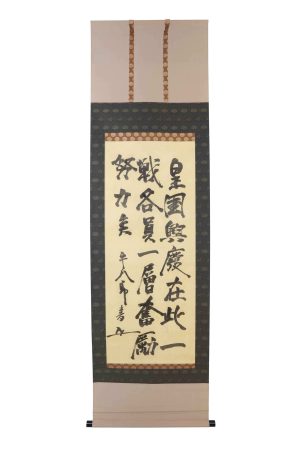 皇国興廃在此一
戦各員一層奮励
努力矣
平八郎書